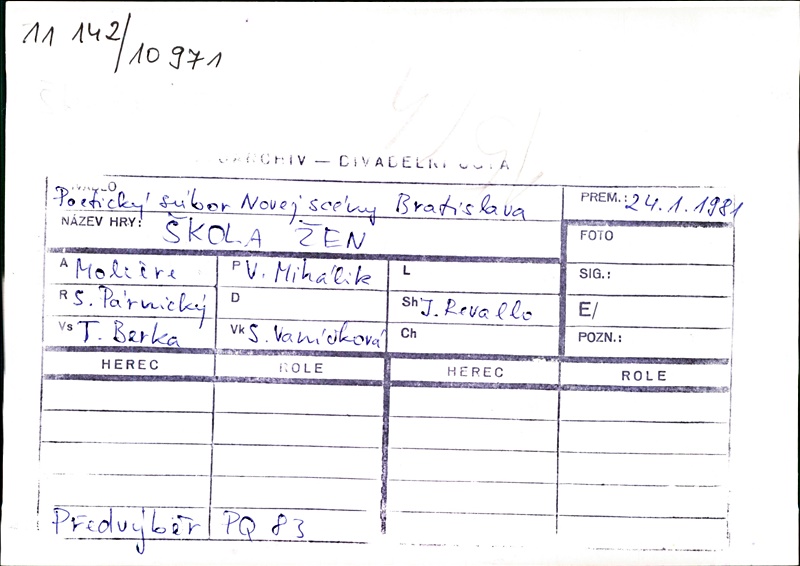 11 142/10 971
ARCHIV – DIVADELNÍ
DIVADLO
Poetický súbor Novej scény Bratislava
PREM.: 24.1.1981
NÁZEV HRY: ŠKOLA ŽEN
FOTO
A Moliére P V. Mihálik L
SIG.:
R S. Párnický D Sh J. Revallo
E/
Vs T. Berka Vk S. Vaníčková Ch
POZN.:
HEREC ROLE HEREC ROLE
Předvýběr PQ 83